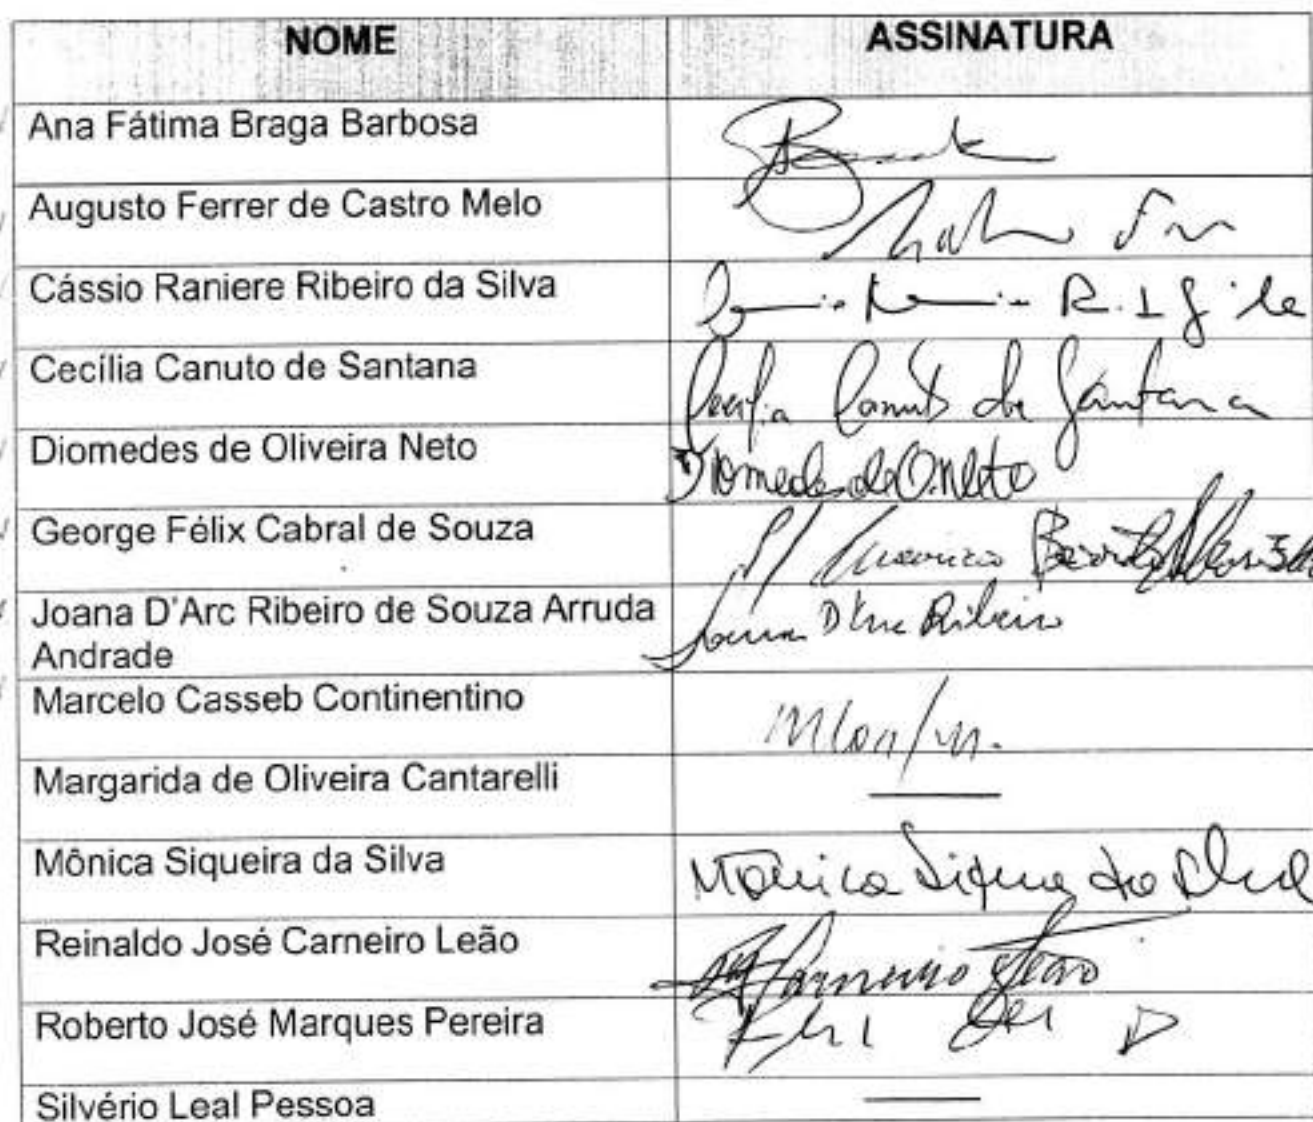 NOME ASSINATURA
Ana Fátima Braga Barbosa
Augusto Ferrer de Castro Melo
Cássio Raniere Ribeiro da Silva
Cecília Canuto de Santana Cecília Canuto de Santana
Diomedes de Oliveira Neto Diomedes de O. Neto
George Félix Cabral de Souza
Joana D'Arc Ribeiro de Souza Arruda Joana D'Arc Ribeiro
Andrade
Marcelo Casseb Continentino
Margarida de Oliveira Cantarelli
Mônica Siqueira da Silva Mônica Siqueira da Silva
Reinaldo José Carneiro Leão Carneiro Leão
Roberto José Marques Pereira
Silvério Leal Pessoa